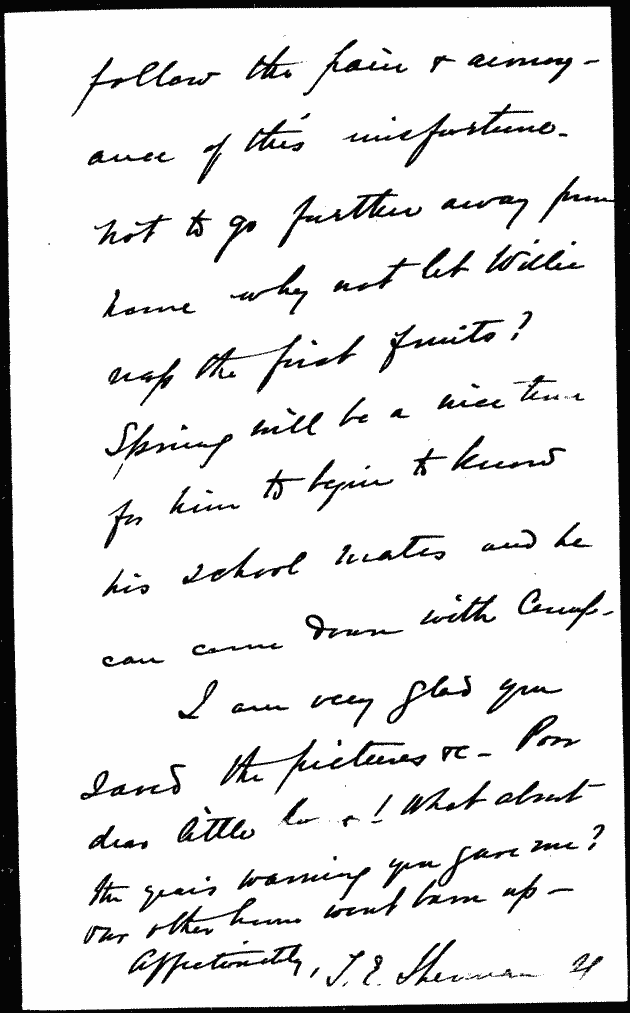 follow the pain & annoy-
ance of this misfortune.
not to go further away from
home why not let Willie
the first fruits?
Spring will be a nice time
for him to begin to know
his school mates and he
can come down with Cump-
I am very glad you
saved the pictures &c - Poor
dear little &! What about
the years warning you gave me?
our other home wont burn up -
Affectionately, T. E. Sherman